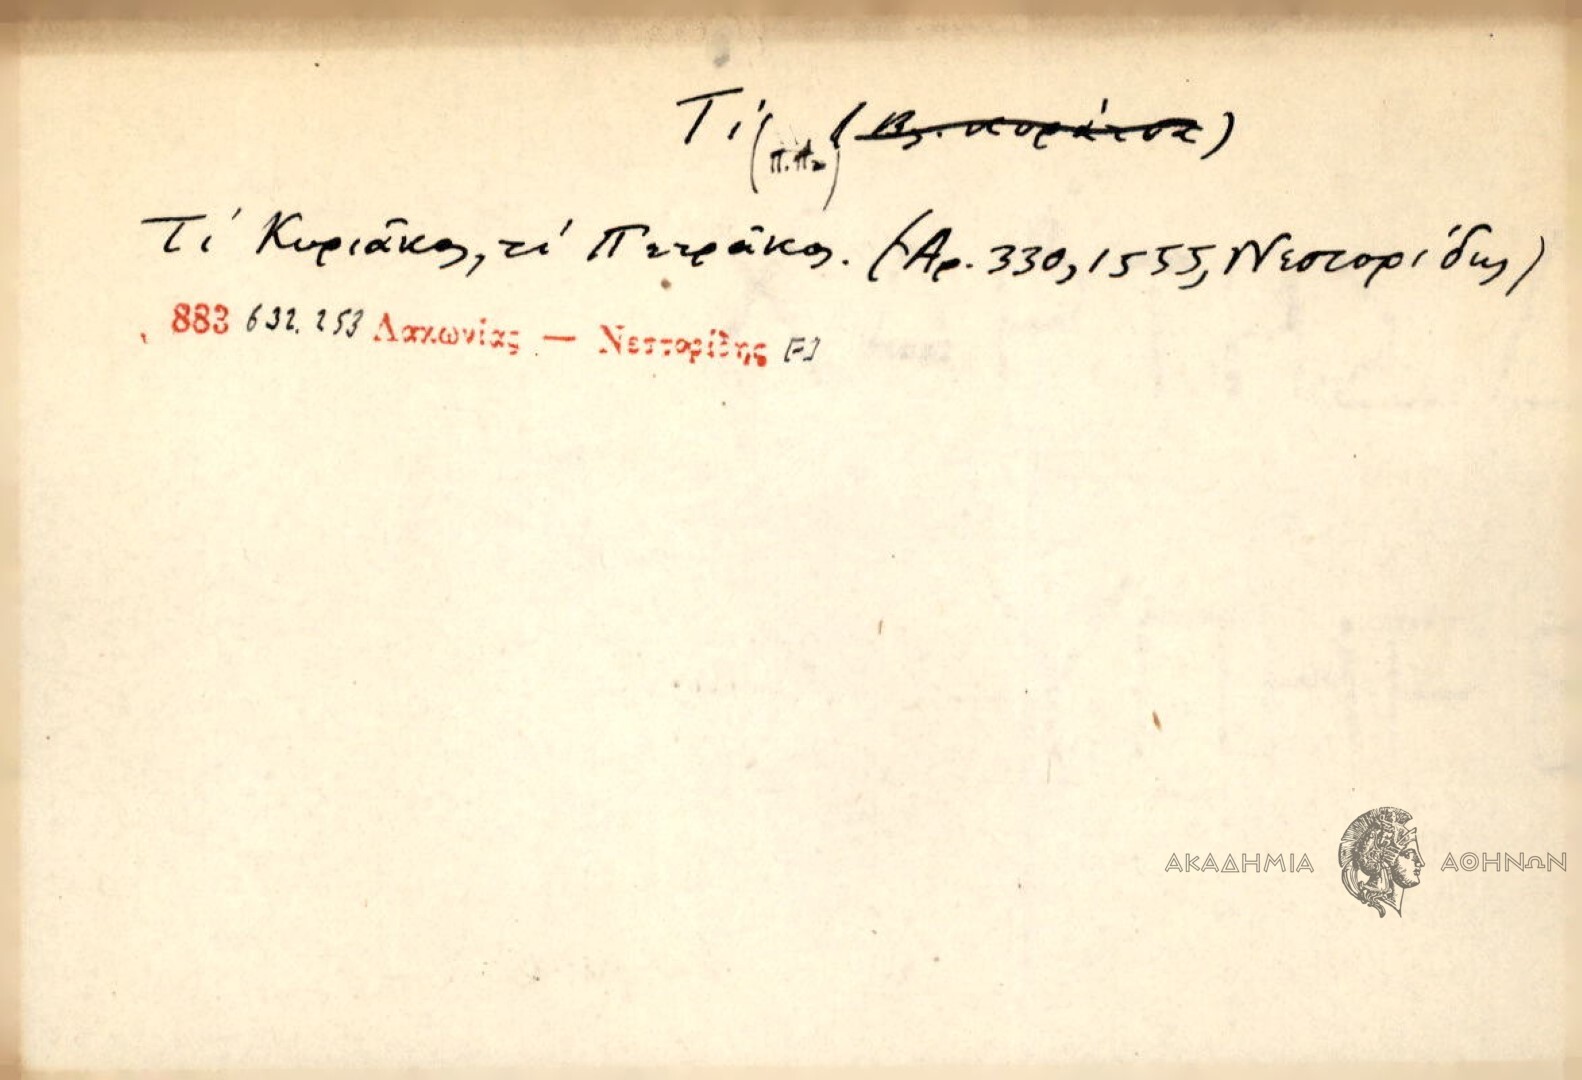 Τί (Π.Π.) (Βλ. κυράτσα)
Τί Κυριᾶκος, τί Πετρᾶκος. (Ἀρ. 330, 1555, Νεστορίδης)
883 632.253 Λακωνίας — Νεστορίδης
ΑΚΑΔΗΜΙΑ ΑΘΗΝΩΝ